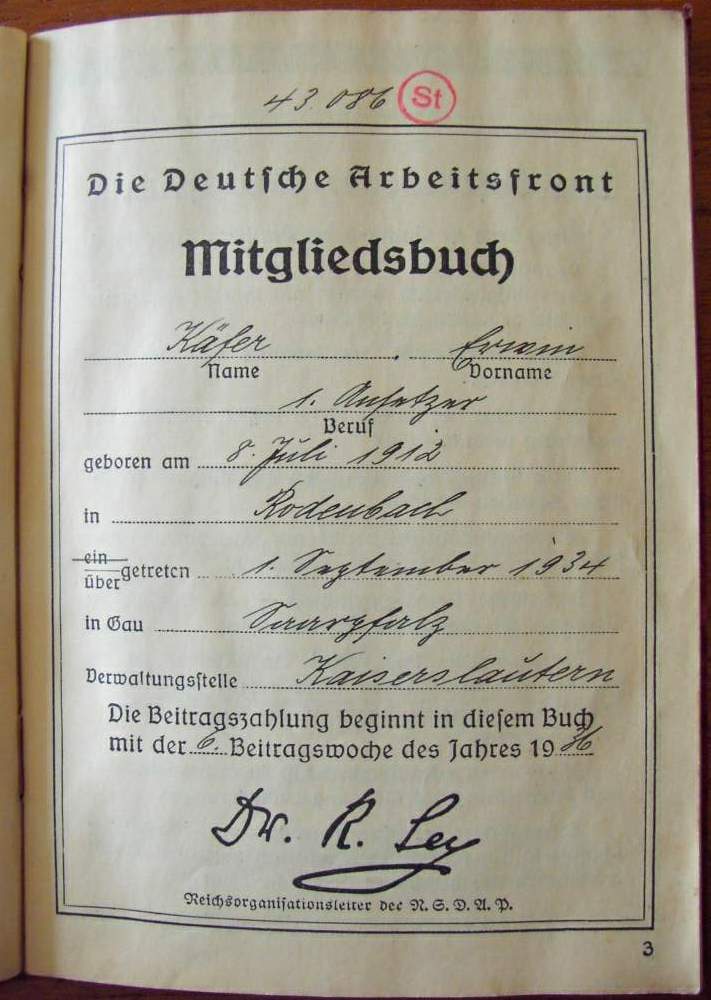 43.086 St
Die Deutsche Arbeitsfront
Mitgliedsbuch
Käfer . Erwin
Name Vorname
1. Ansetzer
Beruf
geboren am 8. Juli 1912
in Rodenbach
ein
über getreten 1. September 1934
in Gau Saarpfalz
Verwaltungsstelle Kaiserslautern
Die Beitragszahlung beginnt in diesem Buch
mit der 6. Beitragswoche des Jahres 1936
Dr. R. Ley
Reichsorganisationsleiter der N.S.D.A.P.
3